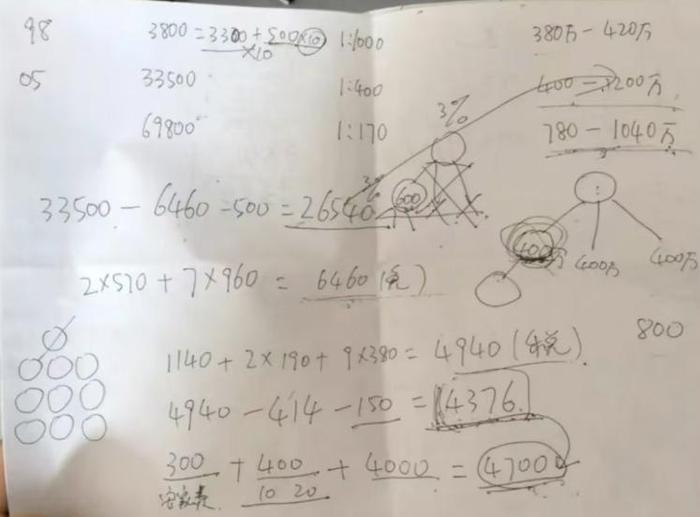 98 3800=3300+500×10 1:1000 380万-420万
×10
05 33500 1:400 400-1200万
69800 1:170 780-1040万
3%
3%
600
33500-6460-500=26540
400万 400万 400万
2×570+7×960=6460(税)
800
1140+2×190+9×380=4940(税)
4940-414-150=4376
300+400+4000=4700
10 20